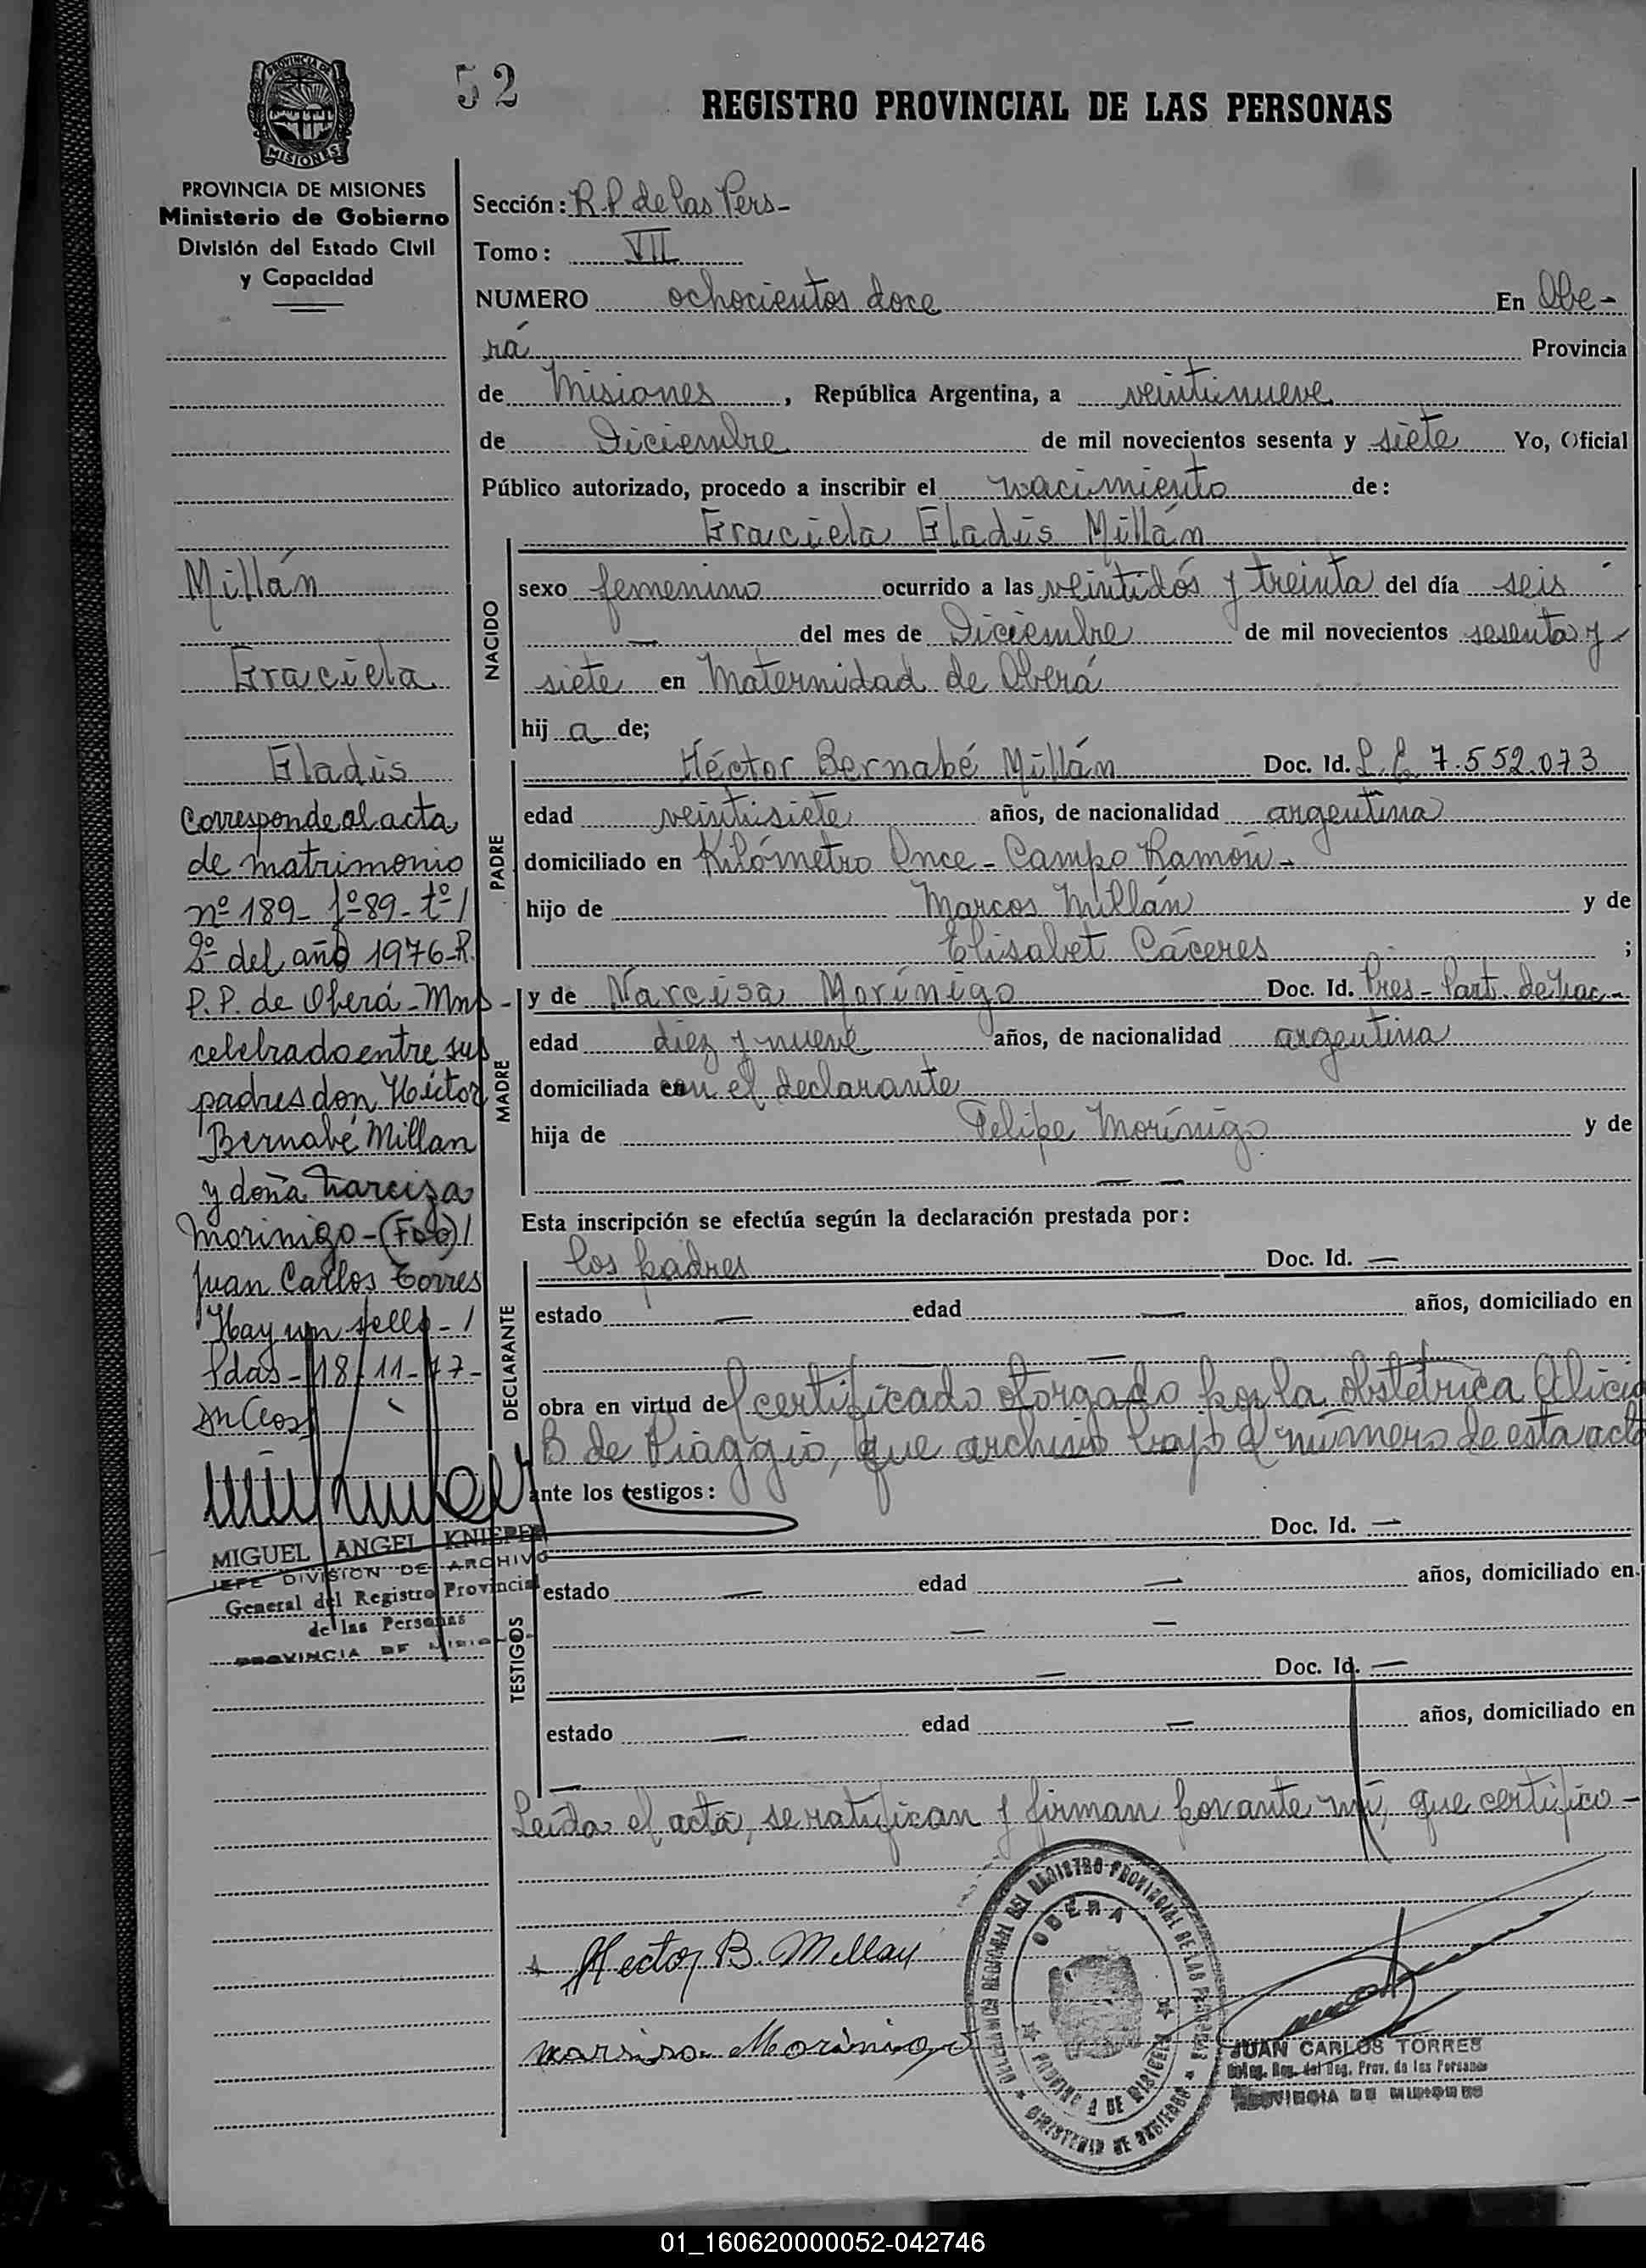 PROVINCIA DE
MISIONES
52
REGISTRO PROVINCIAL DE LAS PERSONAS
PROVINCIA DE MISIONES
Ministerio de Gobierno
División del Estado Civil
y Capacidad
Sección: R.P. de las Pers-
Tomo: VII
NUMERO ochocientos doce En Obe-
rá Provincia
de Misiones, República Argentina, a veintinueve
de Diciembre de mil novecientos sesenta y siete Yo, Oficial
Público autorizado, procedo a inscribir el nacimiento de:
Graciela Gladis Millán
Millán
Graciela
Gladis
NACIDO
sexo femenino ocurrido a las veintidós y treinta del día seis
— del mes de Diciembre de mil novecientos sesenta y
siete en Maternidad de Oberá
hij a de;
PADRE
Héctor Bernabé Millán Doc. Id. L.E. 7.552.073
edad veintisiete años, de nacionalidad argentina
domiciliado en Kilómetro Once - Campo Ramón -
hijo de Marcos Millán y de
Elisabet Cáceres ;
MADRE
y de Narcisa Morínigo Doc. Id. Pres- Part. de Nac-
edad diez y nueve años, de nacionalidad argentina
domiciliada con el declarante
hija de Felipe Morínigo y de
— —
Corresponde al acta
de matrimonio
nº 189- fº 89- tº /
2º del año 1976-R.
P.P. de Oberá-Mns-
celebrado entre sus
padres don Héctor
Bernabé Millan
y doña Narciza
Morinigo-(Fdo) /
Juan Carlos Torres
Hay un sello- /
Pdas- 18-11-77-
MIGUEL ANGEL KNIEPER
JEFE DIVISION DE ARCHIVO
General del Registro Provincial
de las Personas
PROVINCIA DE MISIONES
Esta inscripción se efectúa según la declaración prestada por:
DECLARANTE
los padres Doc. Id. —
estado — edad — años, domiciliado en
— —
obra en virtud del certificado otorgado por la obstétrica Alicia
B de Piaggio, que archivo bajo el número de esta acta
ante los testigos:
TESTIGOS
Doc. Id. —
estado — edad — años, domiciliado en
— —
— Doc. Id. —
estado — edad — años, domiciliado en
—
Leída el acta, se ratifican y firman por ante mí, que certifico-
Hector B. Millan
Narsisa Morinigo
DELEGACION REGIONAL DEL REGISTRO PROVINCIAL DE LAS PERSONAS
OBERA
PROVINCIA DE MISIONES
MINISTERIO DE GOBIERNO
JUAN CARLOS TORRES
Deleg. Reg. del Reg. Prov. de las Personas
PROVINCIA DE MISIONES
01_160620000052-042746